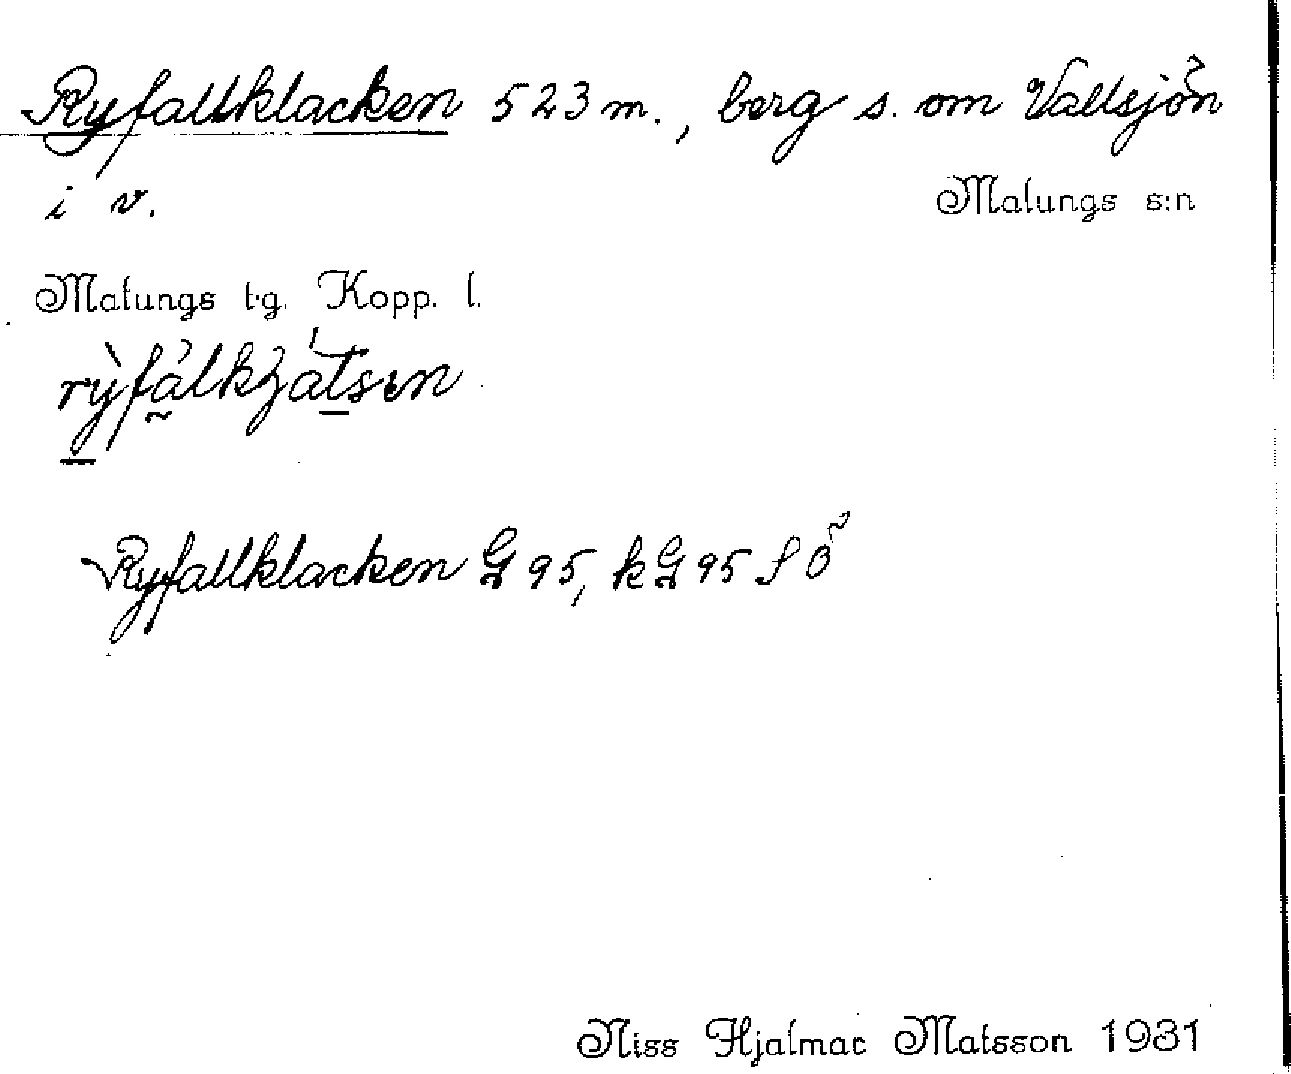 Ryfallklacken 523 m., berg s. om Vallsjön
i v.
Malungs s:n
Malungs tg. Kopp. l.
Ryfallklacken G 95, kG 95 S Ö
Niss Hjalmar Matsson 1931